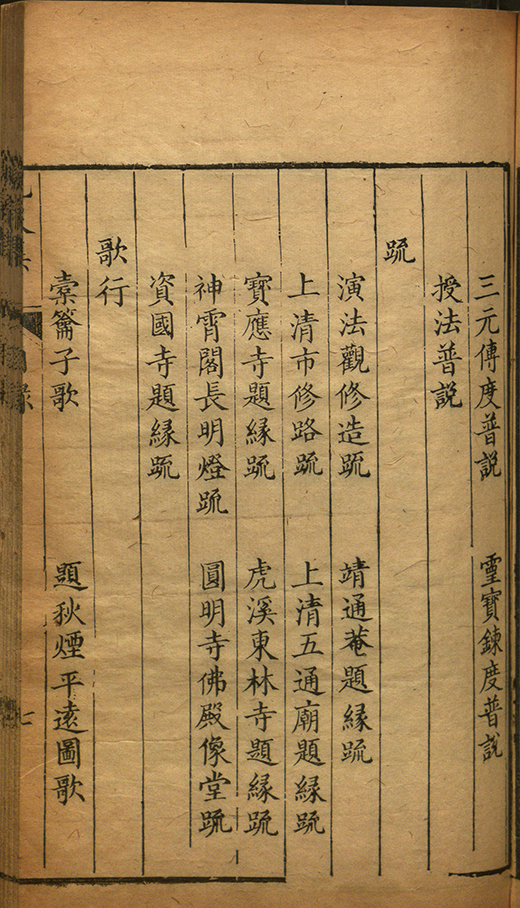 三元傳度普説　靈寶鍊度普説
授法普説
䟽
演法觀修造䟽　靖通菴題緣䟽
上清市修路䟽　上清五通廟題緣䟽
寳應寺題緣䟽　虎溪東林寺題緣䟽
神霄閣長明燈䟽　圓明寺佛殿像堂䟽
資國寺題緣䟽
歌行
橐籥子歌　題秋煙平遠圖歌